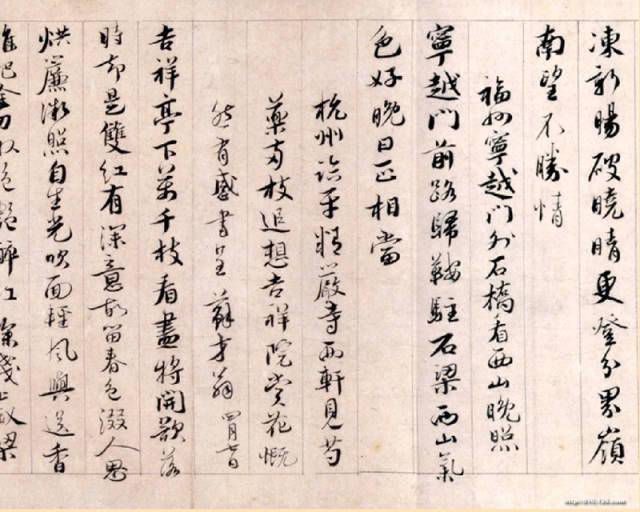 凍新暘破曉晴更登分界嶺
南望不勝情
福州寧越門外石橋看西山晚照
寧越門前路歸鞍駐石梁西山氣
色好晚日正相當
杭州臨平精嚴寺西軒見芍
藥兩枝追想吉祥院賞花慨
然有感書呈蘇才翁 四月七日
吉祥亭下萬千枝看盡將開欲落
時却是雙紅有深意故留春色綴人思
烘簾微照自生光吹面輕風與送香
誰把金刀収絶艶醉紅深淺上釵梁